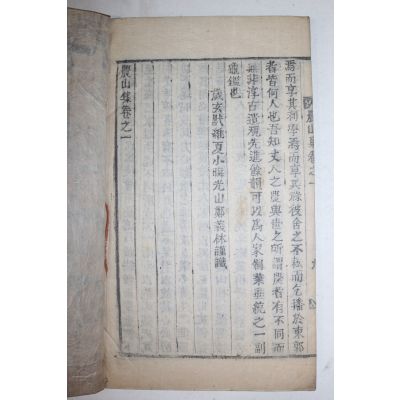 農山集卷之一
焉而享其利學焉而享其祿彼舍之不執而乞墦於東郭
者皆何人也吾知丈人之農與世之所謂農者有不同而
無非淳古遺規先進餘韻可以爲人家傳業垂統之一副
龜鑑也
歲玄黓 夏小晦光山鄭義林謹識
農山集卷之一